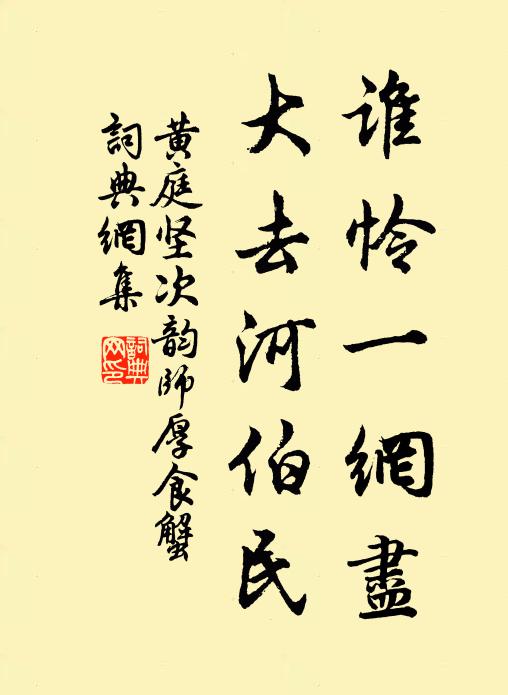 谁怜一網盡
大去河伯民
黃庭坚次韵師厚食蟹
詞典網集
詞典網印